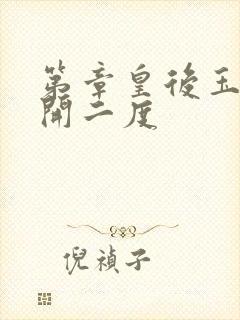 第章皇後玉
開二度
倪禎子